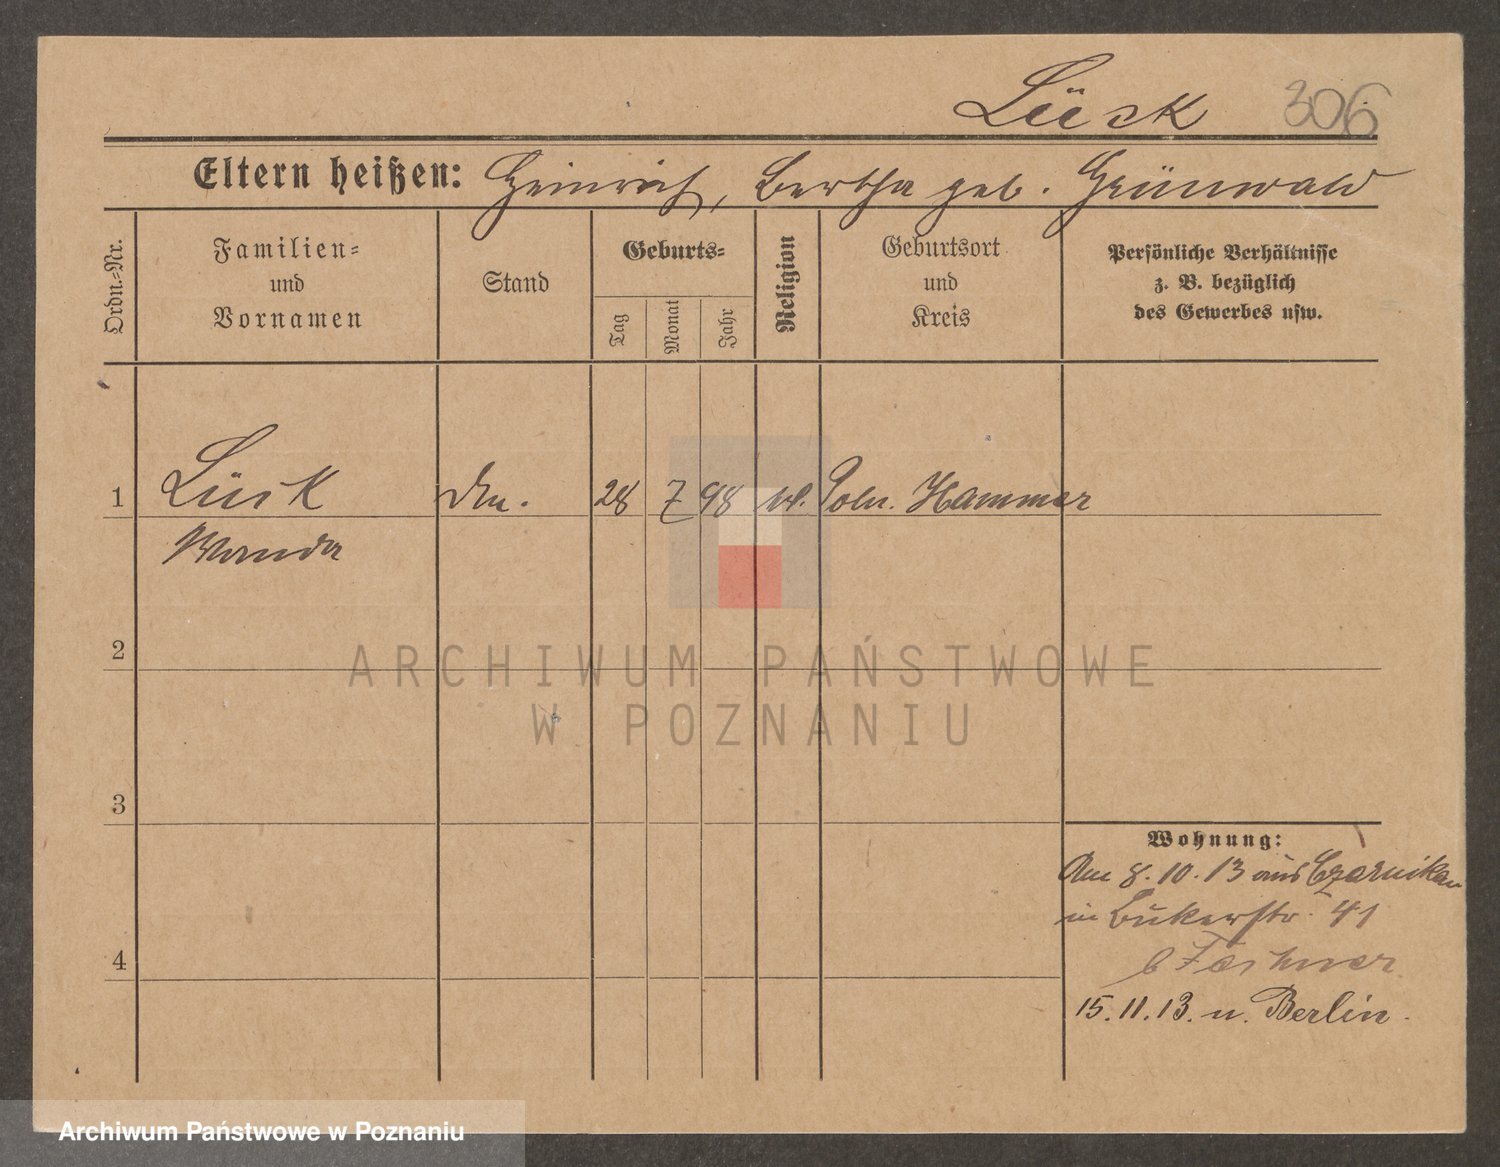 Lück 306
Eltern heißen: Heinrich, Bertha geb. Grünwald
Ordn.-Nr.
Familien-
und
Vornamen
Stand
Geburts-
Tag
Monat
Jahr
Religion
Geburtsort
und
Kreis
Persönliche Verhältnisse
z. B. bezüglich
des Gewerbes usw.
1 Lück 28 7 98 Poln. Hammer
Wanda
2
ARCHIWUM PAŃSTWOWE
W POZNANIU
3
Wohnung:
Am 8.10.13 aus Czarnikau
in Bukerstr. 41
4
15.11.13. n. Berlin.
Archiwum Państwowe w Poznaniu